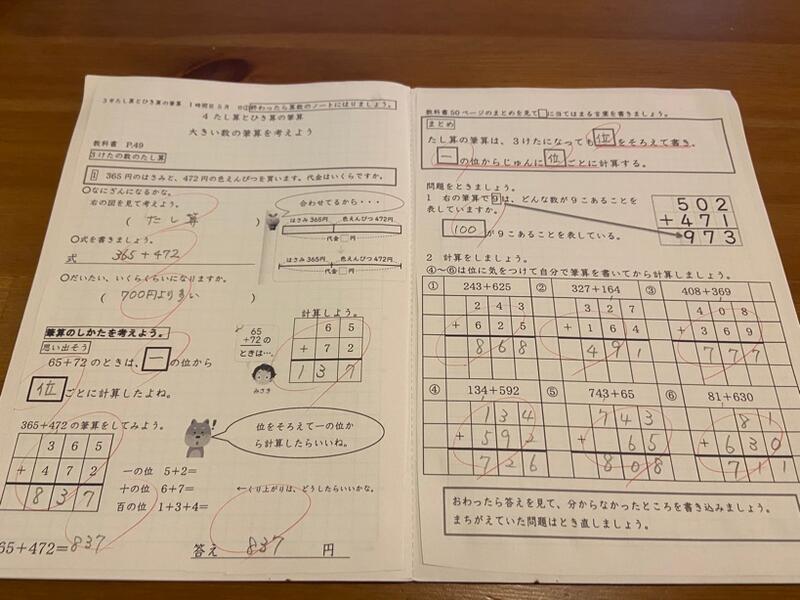 3年たし算とひき算の筆算 1時間目 5月 日② 終わったら算数のノートにはりましょう。
4 たし算とひき算の筆算
大きい数の筆算を考えよう
教科書 P.49
3けたの数のたし算
1 365円のはさみと、472円の色えんぴつを買います。代金はいくらですか。
○なにざんになるかな。
右の図を見て考えよう。
( たし算 )
合わせてるから・・・
はさみ 365円 色えんぴつ 472円
代金□円
はさみ 365円 色えんぴつ 472円
代金□円
○式を書きましょう。
式 365+472
○だいたい、いくらくらいになりますか。
( 700円より多い )
筆算のしかたを考えよう。
思い出そう
65+72のときは、一の位から
位ごとに計算したよね。
65
+72の
ときは…
みさき
計算しよう。
6 5
+ 7 2
1 3 7
365+472の筆算をしてみよう。
3 6 5
+ 4 7 2
8 3 7
位をそろえて一の位か
ら計算したらいいね。
一の位 5+2=
十の位 6+7= ←くり上がりは、どうしたらいいかな。
百の位 1+3+4=
65+472=837
答え 837 円
教科書50ページのまとめを見て□に当てはまる言葉を書きましょう。
まとめ
たし算の筆算は、3けたになっても位をそろえて書き、
一の位からじゅんに位ごとに計算する。
問題をときましょう。
1 右の筆算で9は、どんな数が9こあることを
表していますか。
100が9こあることを表している。
5 0 2
+ 4 7 1
9 7 3
2 計算をしましょう。
④~⑥は位に気をつけて自分で筆算を書いてから計算しましょう。
① 243+625 ② 327+164 ③ 408+369
2 4 3
+ 6 2 5
8 6 8
3 2 7
+ 1 6 4
4 9 1
4 0 8
+ 3 6 9
7 7 7
④ 134+592 ⑤ 743+65 ⑥ 81+630
1 3 4
+ 5 9 2
7 2 6
7 4 3
+ 6 5
8 0 8
8 1
+ 6 3 0
7 1 1
おわったら答えを見て、分からなかったところを書き込みましょう。
まちがえていた問題はとき直しましょう。